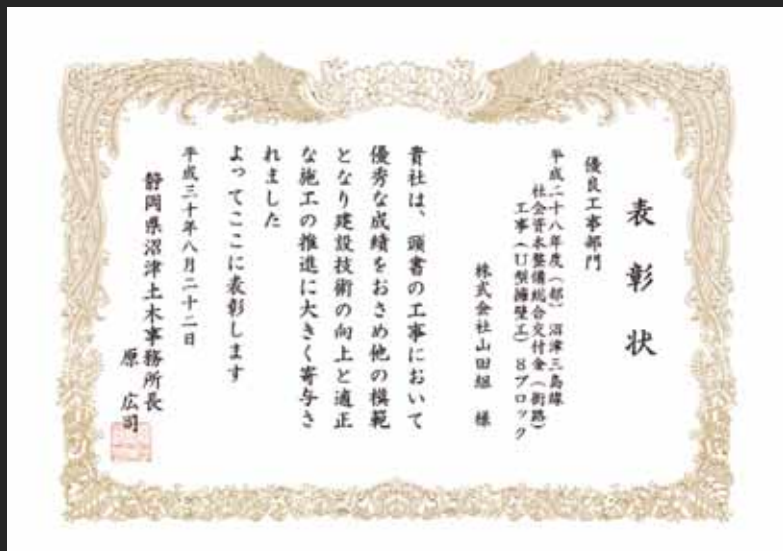 表彰状
優良工事部門
平成二十八年度(都)沼津三島線
社会資本整備総合交付金(街路)
工事(U型擁壁工)8ブロック
株式会社山田組 様
貴社は、頭書の工事において
優秀な成績をおさめ他の模範
となり建設技術の向上と適正
な施工の推進に大きく寄与さ
れました
よってここに表彰します
平成三十年八月二十二日
静岡県沼津土木事務所長
原 広司